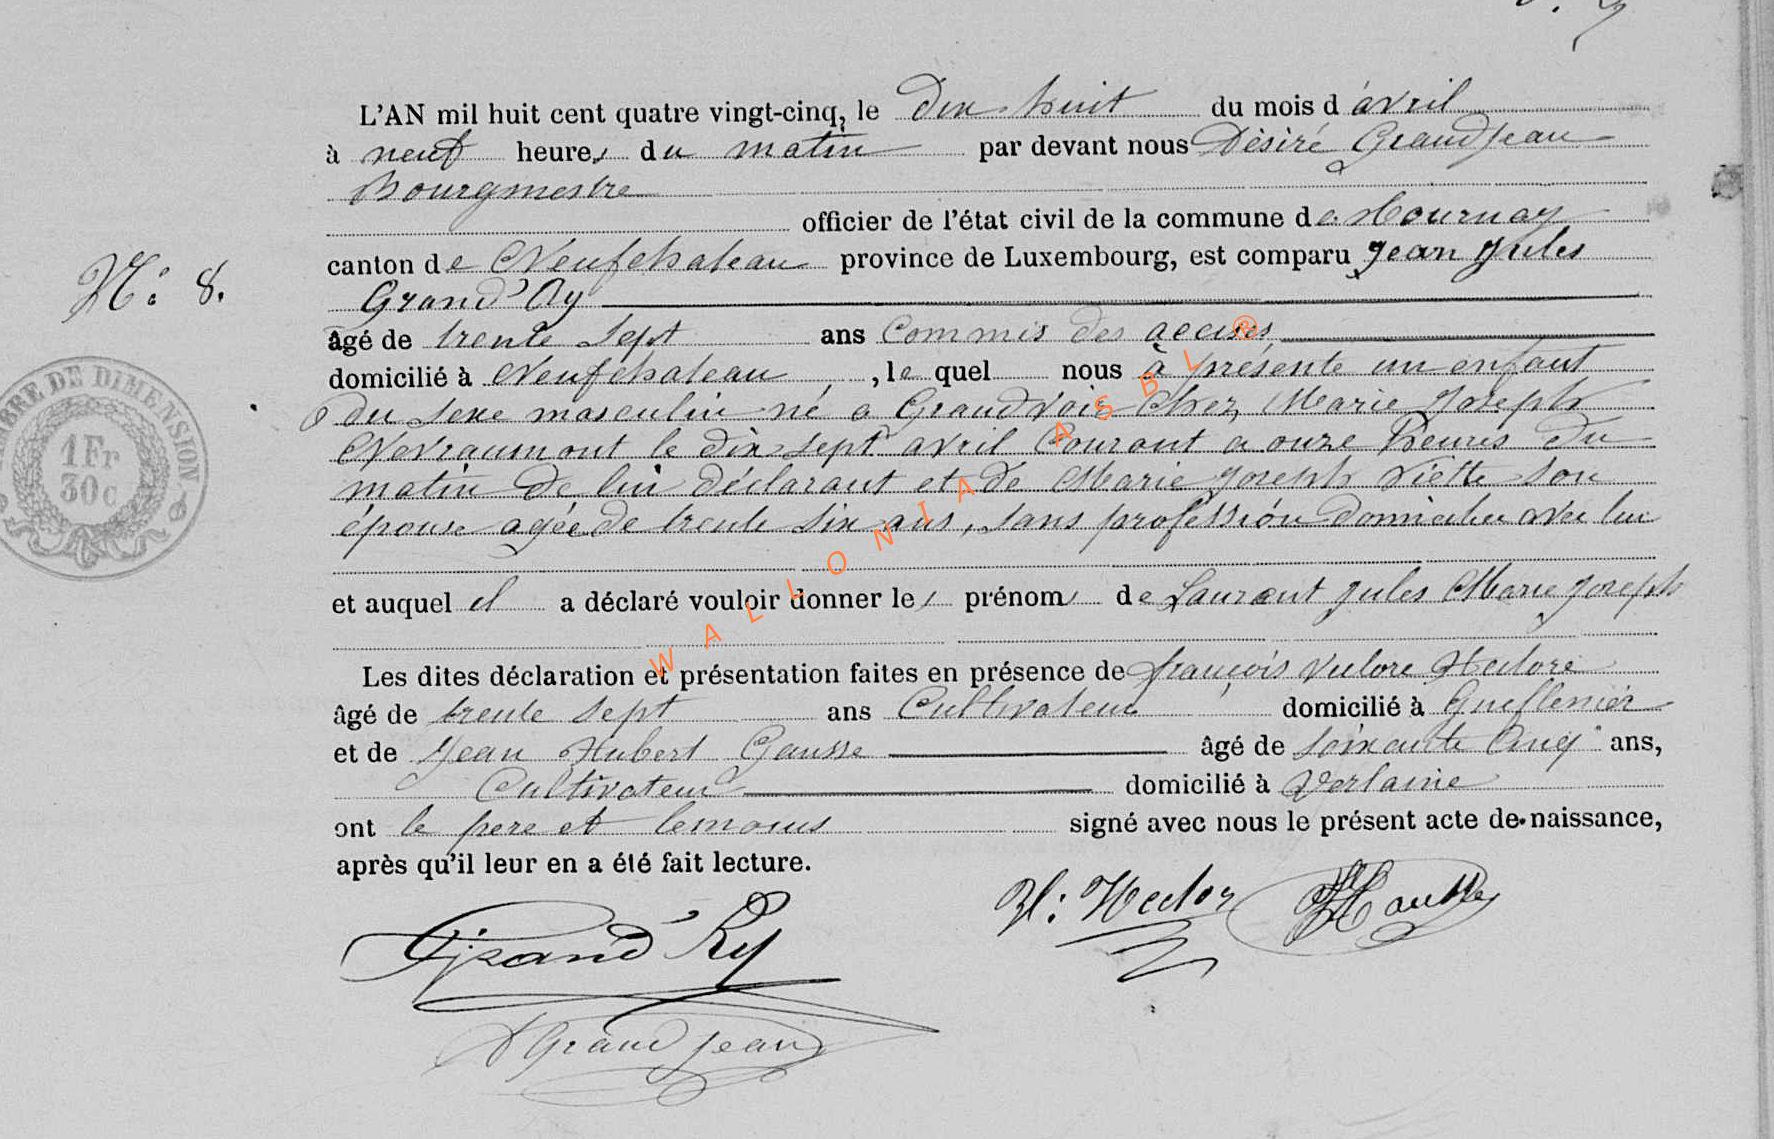 N.° 8.
TIMBRE DE DIMENSION
1Fr
30c
L'AN mil huit cent quatre vingt-cinq, le dix huit du mois d'avril
à neuf heures du matin par devant nous Désiré Grandjean
Bourgmestre
officier de l'état civil de la commune de Tournay
canton de Neufchateau province de Luxembourg, est comparu Jean Jules
Grand'Ry
âgé de trente sept ans Commis des accises
domicilié à Neufchateau, le quel nous à présenté un enfant
du sexe masculin né a Grandvoir chez Marie Joseph
Nevraumont le dix sept avril courant a onze heures du
matin de lui déclarant et de Marie Joseph Viette son
épouse agée de trente six ans, sans profession domiciliée avec lui
et auquel il a déclaré vouloir donner les prénoms de Laurent Jules Marie Joseph
Les dites déclaration et présentation faites en présence de françois Victore Hectore
âgé de trente sept ans Cultivateur domicilié à
et de Jean Hubert Gausse âgé de soixante cinq ans,
Cultivateur domicilié à Verlaine
ont le père et temoins signé avec nous le présent acte de naissance,
après qu'il leur en a été fait lecture.
Hector
Grand'Ry
D Grandjean
WALLONIA ASBL ®